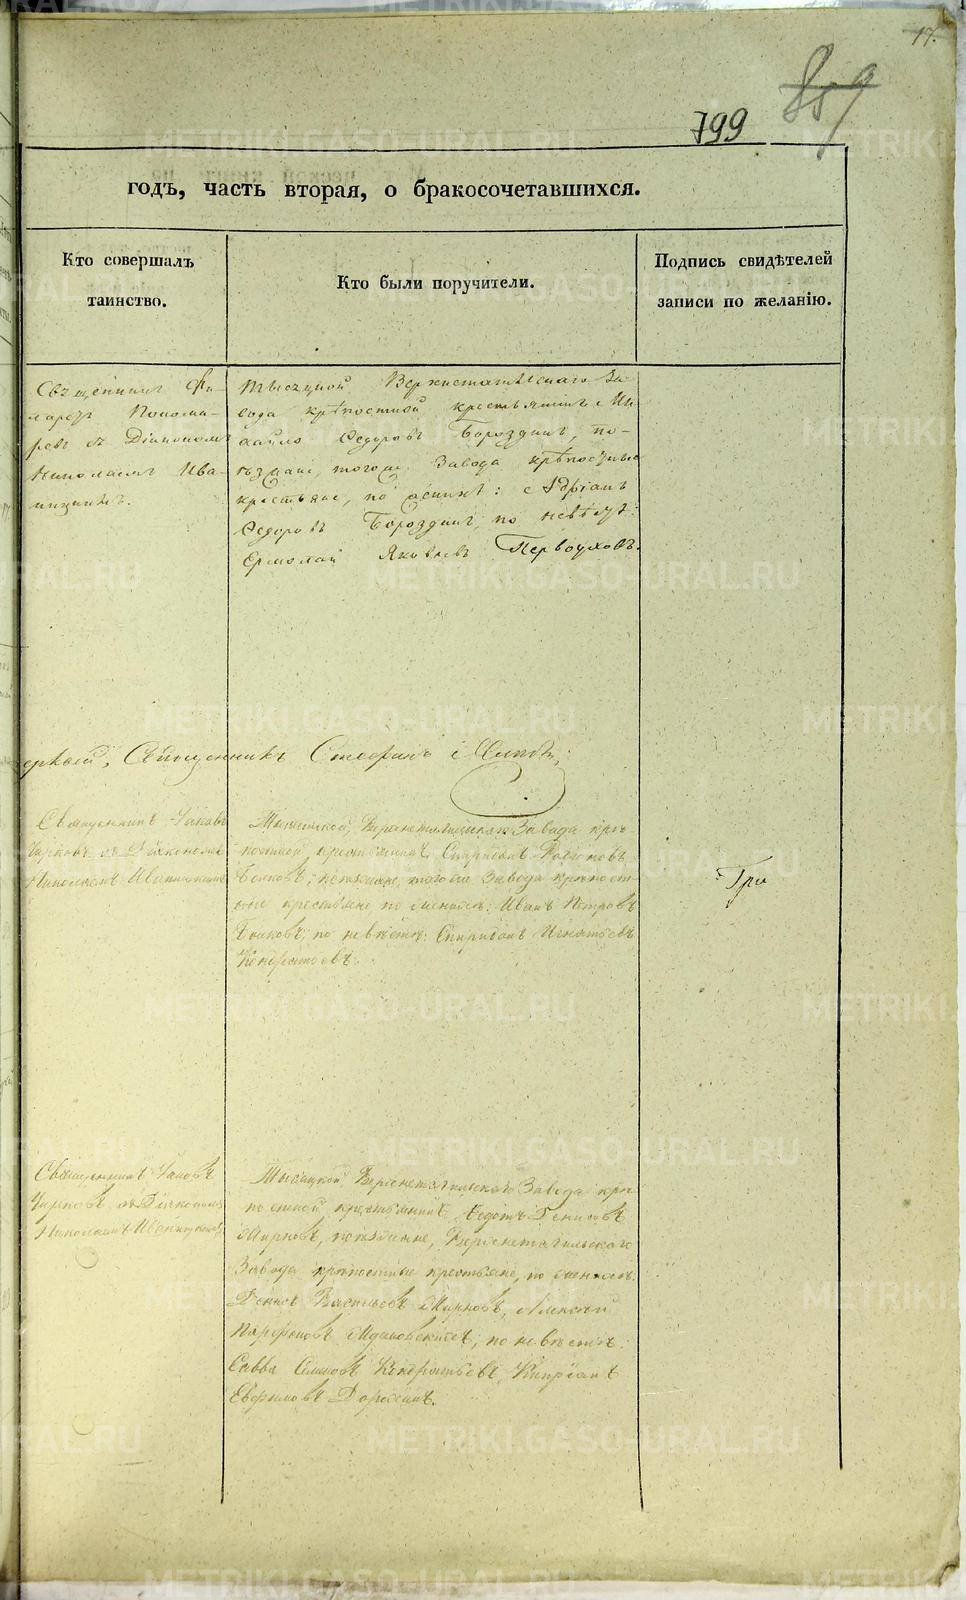 17.
859
799
годъ, часть вторая, о бракосочетавшихся.
Кто совершалъ
таинство.
Кто были поручители.
Подпись свидѣтелей
записи по желанію.
Священникъ Фи-
ларетъ Понома-
ревъ съ Діакономъ
Николаемъ Ива-
ницкимъ.
Тысяцкой Верхнетагильскаго За-
вода крѣпостной крестьянинъ Ми-
хайло Ѳедоровъ Бороздинъ, по-
ѣзжане, тогоже Завода крѣпостные
крестьяне, по женихѣ: Адріанъ
Ѳедоровъ Бороздинъ, по невѣстѣ:
Ермолай Яковлевъ Первоуховъ.
Священникъ Стефанъ
Священникъ Іаковъ
Чирковъ съ Діакономъ
Николаемъ Иваницкимъ
Тысяцкой Верхнетагильскаго Завода крѣ-
постной крестьянинъ Спиридонъ
поѣзжане, того же Завода крѣпост-
ные крестьяне по женихѣ: Иванъ Петровъ
по невѣстѣ: Спиридонъ Игнатьевъ
Кондратьевъ.
Три
Священникъ Іаковъ
Чирковъ съ Діакономъ
Николаемъ Иваницкимъ
Тысяцкой Верхнетагильскаго Завода крѣ-
постной крестьянинъ Ѳедотъ Денисовъ
Мирновъ, поѣзжане, Верхнетагильскаго
Завода крѣпостные крестьяне, по женихѣ:
Денисъ Васильевъ Мирновъ, Алексѣй
Парфеновъ по невѣстѣ:
Савва Кондратьевъ, Кипріанъ
Евфимовъ Дорохинъ.
METRIKI.GASO-URAL.RU